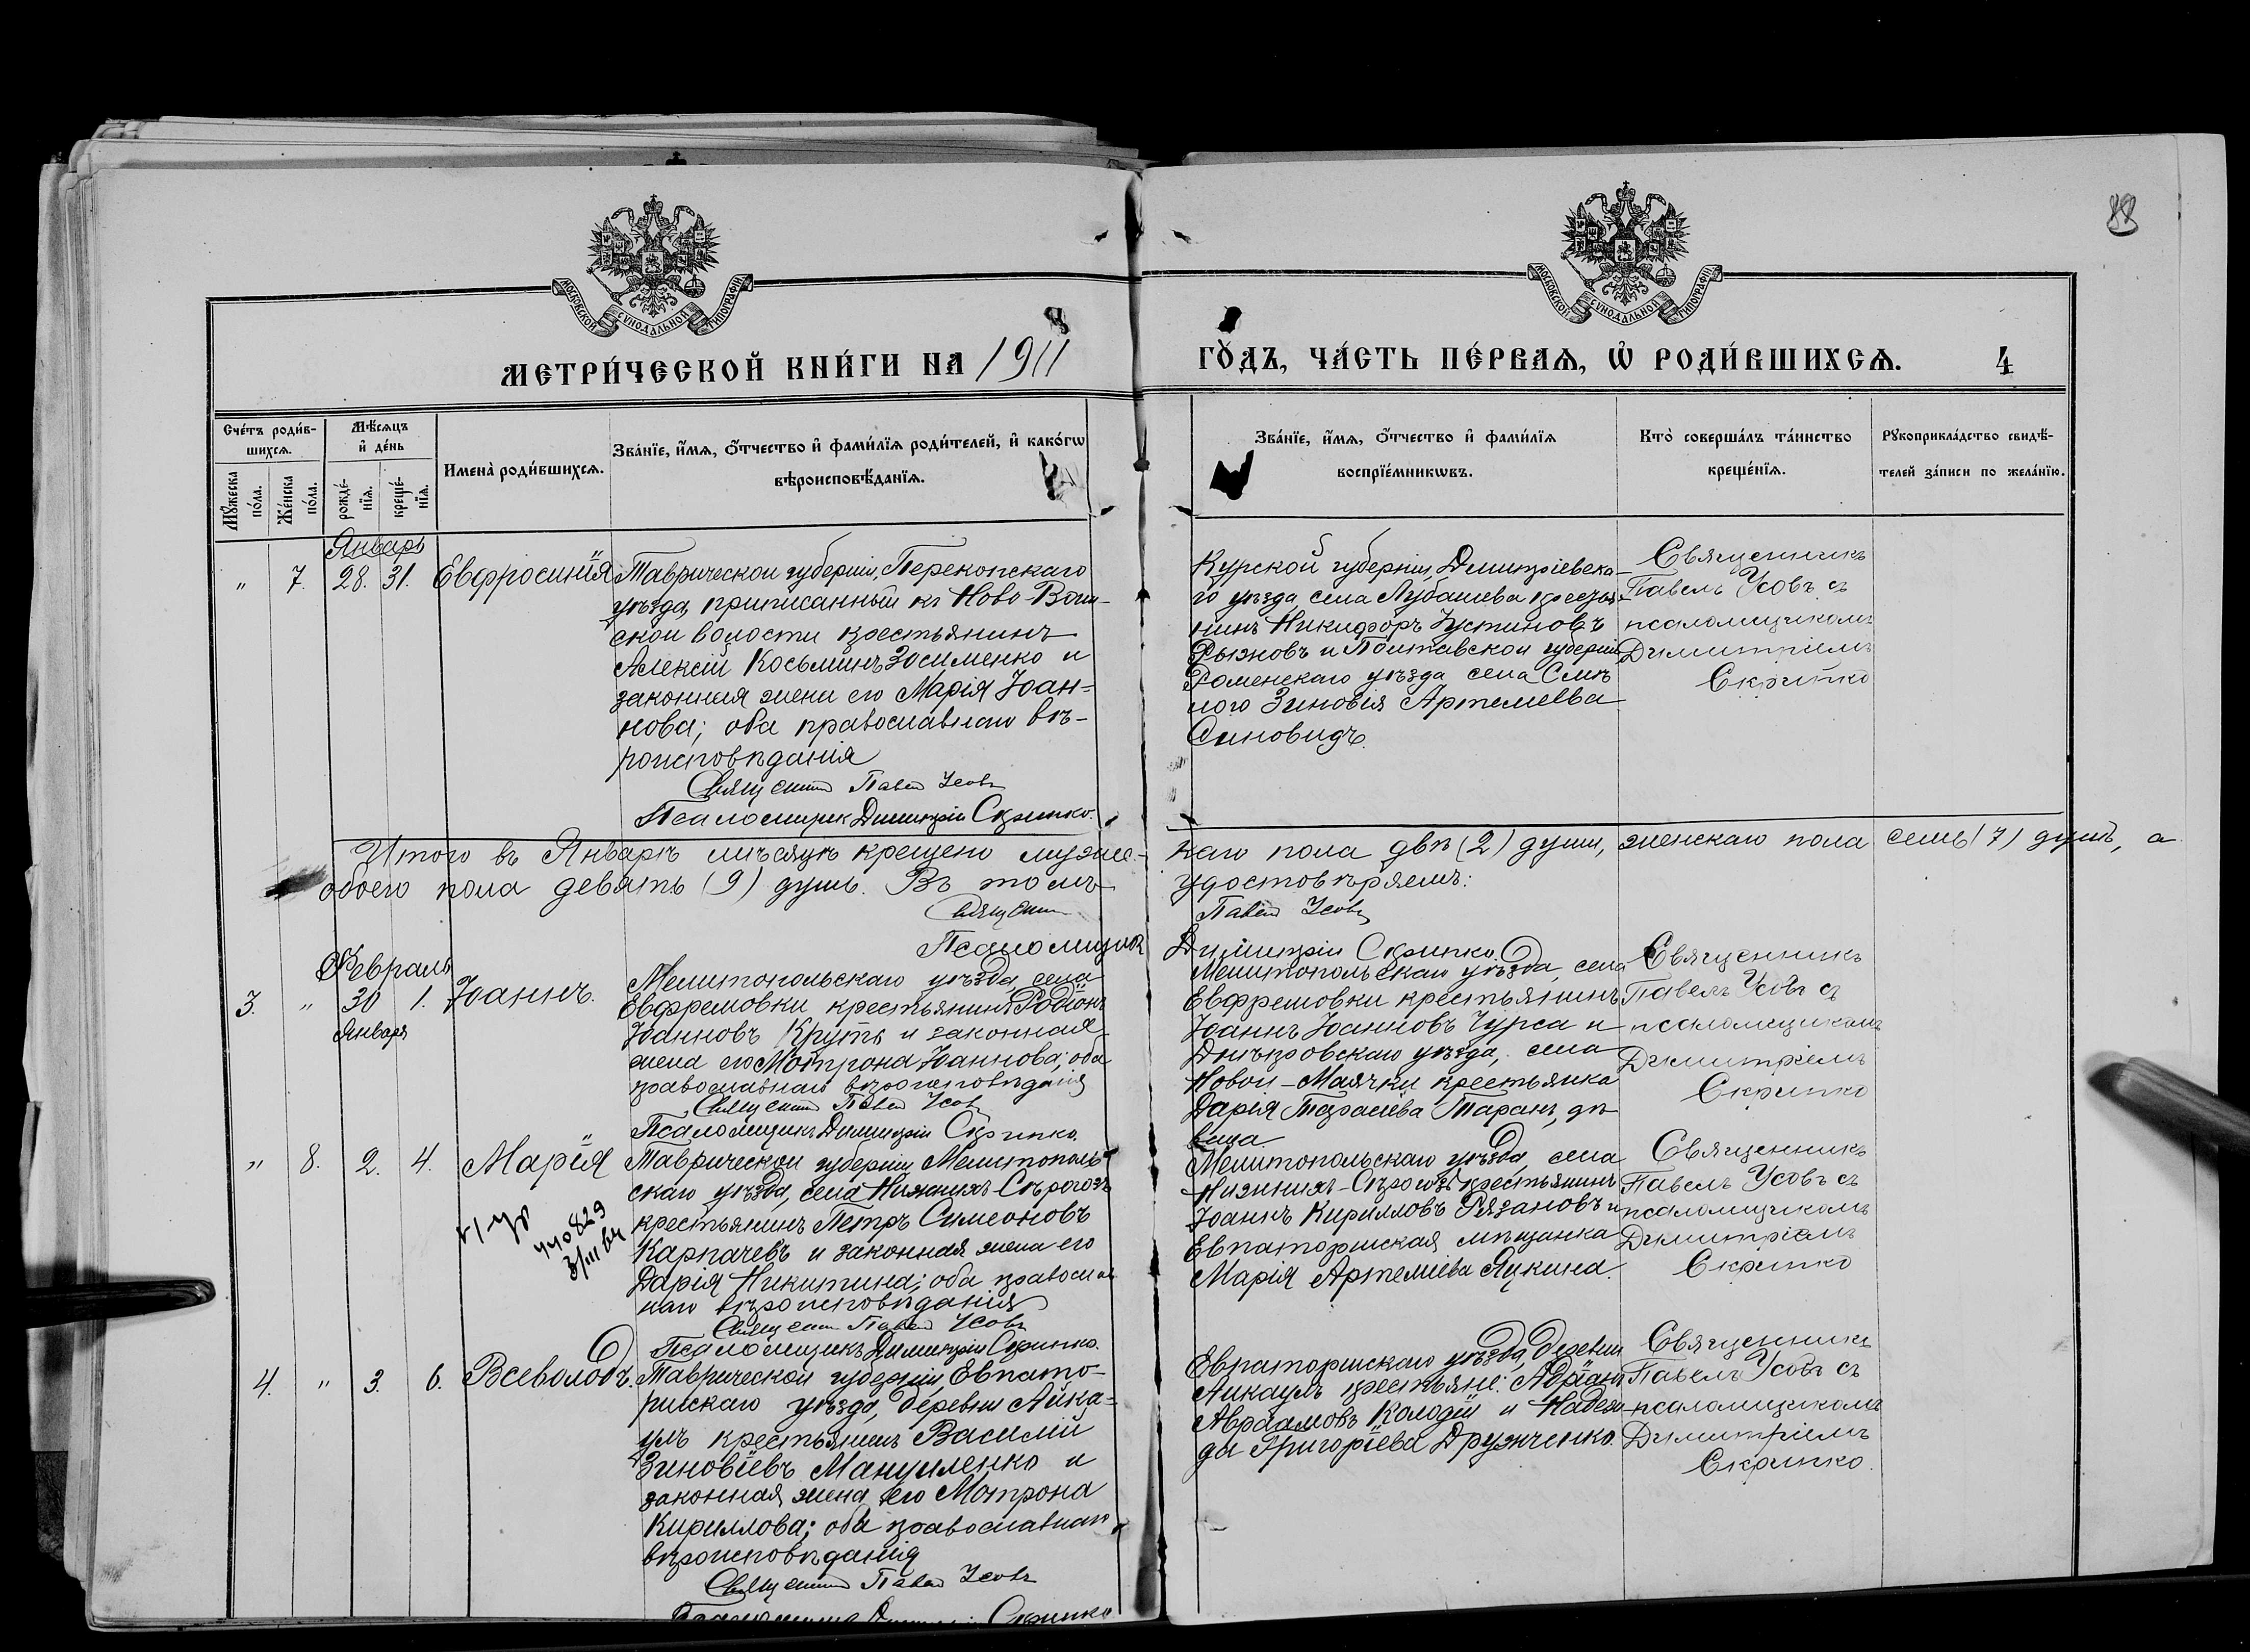 88
МОСКОВСКОЙ СѴНОДАЛЬНОЙ ТИПОГРАФІИ
МОСКОВСКОЙ СѴНОДАЛЬНОЙ ТИПОГРАФІИ
МЕТРИ́ЧЕСКОЙ КНИ́ГИ НА 1911
ГО́ДЪ, ЧА́СТЬ ПЕ́РВАѦ, Ѡ РОДИ́ВШИХСѦ. 4
Сче́тъ роди́в-
шихсѧ.
Мꙋ́жеска
по́ла.
Же́нска
по́ла.
Мѣ́сѧцъ
и҆ де́нь
рожде́-
нїѧ.
креще́-
нїѧ.
Имена̀ роди́вшихсѧ.
Зва́нїе, и҆́мѧ, ѻ҆́тчество и҆ фами́лїѧ роди́телей, и҆ како́гѡ
вѣроисповѣ́данїѧ.
Зва́нїе, и҆́мѧ, ѻ҆́тчество и҆ фами́лїѧ
воспрїе́мникѡвъ.
Кто̀ соверша́лъ та́инство
креще́нїѧ.
Рꙋкоприкла́дство свидѣ́-
телей за́писи по жела́нїю.
Январь
" 7. 28. 31. Евфросинія
Таврической губерніи, Перекопскаго
уѣзда, приписанный къ Ново-
ской волости крестьянинъ
Алексій Косьминъ Зосименко и
законная жена его Марія Іоан-
нова; оба православнаго вѣ-
роисповѣданія
Священникъ Павелъ Усовъ
Псаломщикъ Димитрій Скрипко.
Курской губерніи, Димитріевска-
го уѣзда, села Лубашева крестья-
нинъ Никифоръ Іустиновъ
Рыжовъ и Полтавской губерніи
Роменскаго уѣзда села Смѣ-
лого Зиновія Артемиева
Синовидъ.
Священникъ
Павелъ Усовъ съ
псаломщикомъ
Димитріемъ
Скрипко
Итого въ Январѣ мѣсяцѣ крещено мужес-
каго пола двѣ (2) души, женскаго пола семь (7) душъ, а
обоего пола девять (9) душъ. Въ томъ
удостовѣряемъ:
Священникъ
Павелъ Усовъ
Псаломщикъ
Димитрій Скрипко.
Февраль
3. " 30 1. Іоаннъ.
Января
Мелитопольскаго уѣзда, села
Евфремовки крестьянинъ Родіонъ
Іоанновъ Круть и законная
жена его Мотрона Іоаннова; оба
православнаго вѣроисповѣданія
Священникъ Павелъ Усовъ
Псаломщикъ Димитрій Скрипко.
Мелитопольскаго уѣзда, села
Евфремовки крестьянинъ
Іоаннъ Іоанновъ Чурса и
Днѣпровскаго уѣзда, села
Новой-Маячки крестьянка
Дарія Тарасіева Таранъ, дѣ-
вица.
Священникъ
Павелъ Усовъ съ
псаломщикомъ
Димитріемъ
Скрипко
" 8. 2. 4. Марія
3/III 64
Таврической губерніи Мелитополь-
скаго уѣзда, села Нижнихъ Сѣрогозъ
крестьянинъ Петръ Симеоновъ
Карпачевъ и законная жена его
Дарія Никитина; оба православ-
наго вѣроисповѣданія
Священникъ Павелъ Усовъ
Псаломщикъ Димитрій Скрипко.
Мелитопольскаго уѣзда, села
Нижнихъ-Сѣрогозъ крестьянинъ
Іоаннъ Кирилловъ Рязановъ и
Евпаторійская мѣщанка
Марія Артемиева Яцкина.
Священникъ
Павелъ Усовъ съ
псаломщикомъ
Димитріемъ
Скрипко
4. " 3. 6. Всеволодъ.
Таврической губерніи, Евпато-
рійскаго уѣзда, деревни Айка-
улъ крестьянинъ Василій
Зиновіевъ Мануиленко и
законная жена его Мотрона
Кириллова; оба православнаго
вѣроисповѣданія
Священникъ Павелъ Усовъ
Псаломщикъ Димитрій Скрипко
Евпаторійскаго уѣзда, деревни
Айкаулъ крестьяне: Адріанъ
Авраамовъ Колодій и Надеж-
да Григоріева Дружченко.
Священникъ
Павелъ Усовъ съ
псаломщикомъ
Димитріемъ
Скрипко.